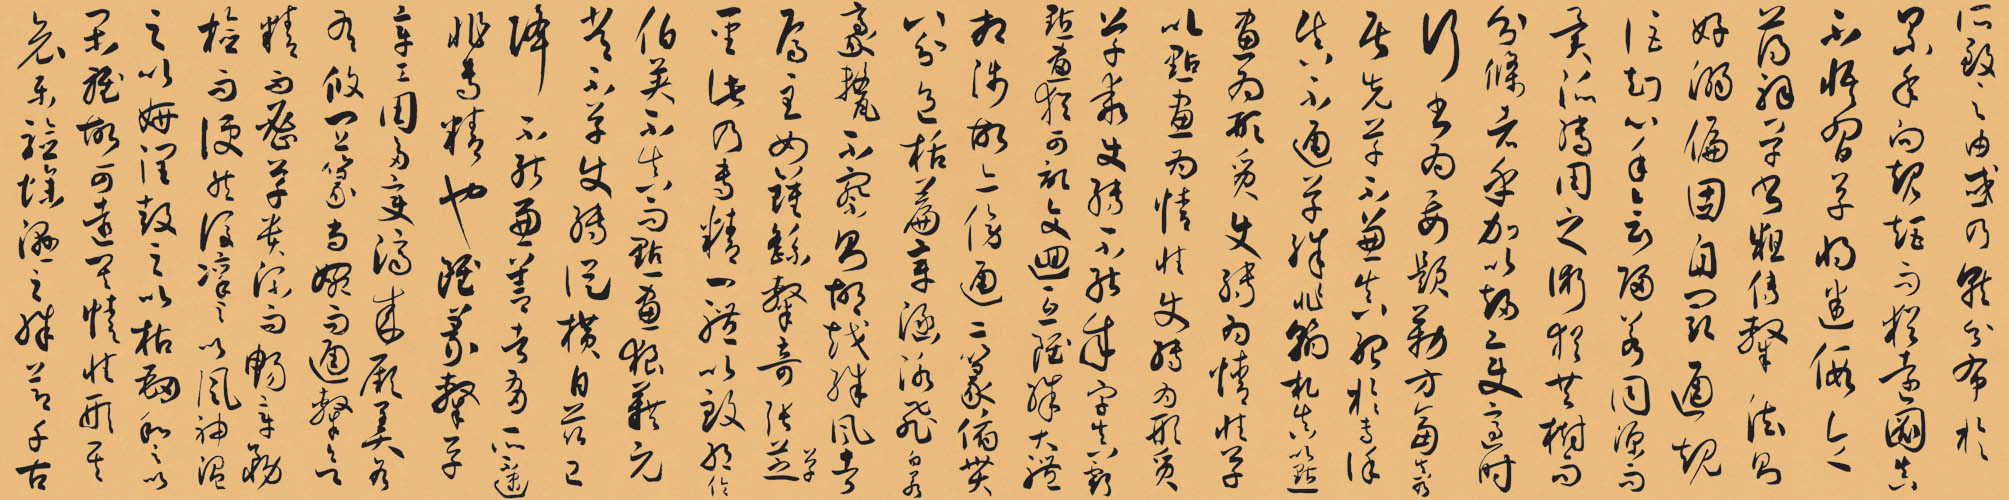 所致之由或乃就分布於
累年向規矩而猶遠圖真
不悟習草將迷假令
薄解草書粗傳隸法則
好溺偏固自閡通規
詎知心手會歸若同源而
異派轉用之術猶共樹而
分條者乎加以趨變適時
行書為要題勒方畐真乃
居先草不兼真殆於專謹
真不通草殊非翰札真以點
畫為形質使轉為情性草
以點畫為情性使轉為形質
草乖使轉不能成字真虧
點畫猶可記文迴互雖殊大體
相涉故亦傍通二篆俯貫
八分包括篇章涵泳飛白若
毫釐不察則胡越殊風者
焉至如鍾繇隸奇張芝草
聖此乃專精一體以致絕倫
伯英不真而點畫狼藉元
常不草使轉縱橫自茲已
降不能兼善者有所不逮
非專精也雖篆隸草
章工用多變濟成厥美各
有攸宜篆尚婉而通隸欲
精而密草貴流而暢章務
檢而便然後凜之以風神溫
之以妍潤鼓之以枯勁和之以
閑雅故可達其情性形其
哀樂驗燥濕之殊節千古